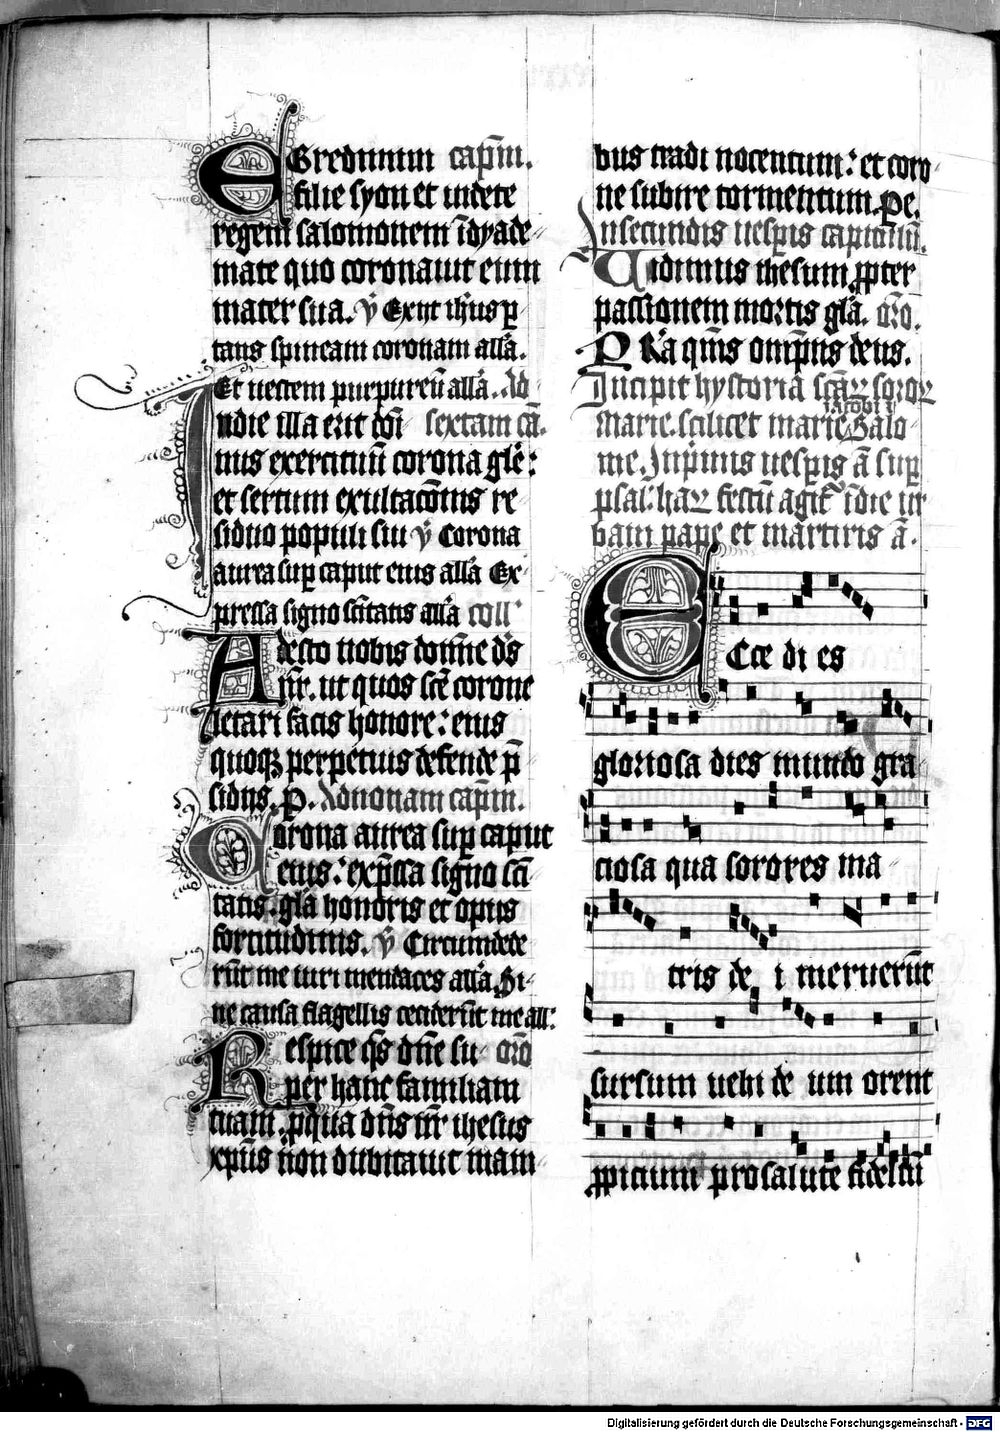 EGredimini capl̄m.
filie syon et videte
regem salomonem ī dyade-
mate quo coronauit eum
mater sua. v̄ Exiit ih̄us p̱
tans spineam coronam all̄a.
Et vestem purpureū all̄a. Ad
INdie illa erit dn̄s sextam ca.
nus exercituū corona gl̄e:
et sertum exultacōnis re-
siduo populi sui v̄ Corona
aurea sup̱ caput eius all̄a Ex-
pressa signo sc̄itatis all̄a coll'
ADesto nobis domīe d̄s
nr̄. ut quos sc̄e corone
letari facis honore: eius
quoqꝫ perpetuis defende p̄
sidijs. p̱. Ad nonam capl̄m.
COrona aurea sup̱ caput
eius: exp̄ssa signo sc̄i
tatis. gl̄a honoris et opus
fortitudinis. v̄ Circumdede
rūt me viri mendaces all̄a. Si-
ne causa flagellis ceciderūt me all':
REspice q̄s dn̄e su- or̄o
per hanc familiam
tuam. p̱ qua dn̄s nr̄ ihesus
xp̄us nōn dubitauit mani
bus tradi nocentum: et coro-
ne subire tormentum. Pe.
In secundis uesp̱is capitulū.
Vidimus ihesum ꝓpter
passionem mortis gl̄a. or̄o.
PRa q̄ms omp̄ns deus.
Incipit hystoria sc̄aꝝ soroꝝ
iacobi ⁊
marie. scilicet marie Salo-
me. In p̄mis uesp̱is ā sup̱
psal'. haꝝ festū agit' ī die ur
bani pape et martiris ā.
ECce di es
gloriosa dies mundo gra-
ciosa qua sorores ma-
tris de i meruerūt
sursum uehi de um orent
ꝓpicium pro salute fideliū